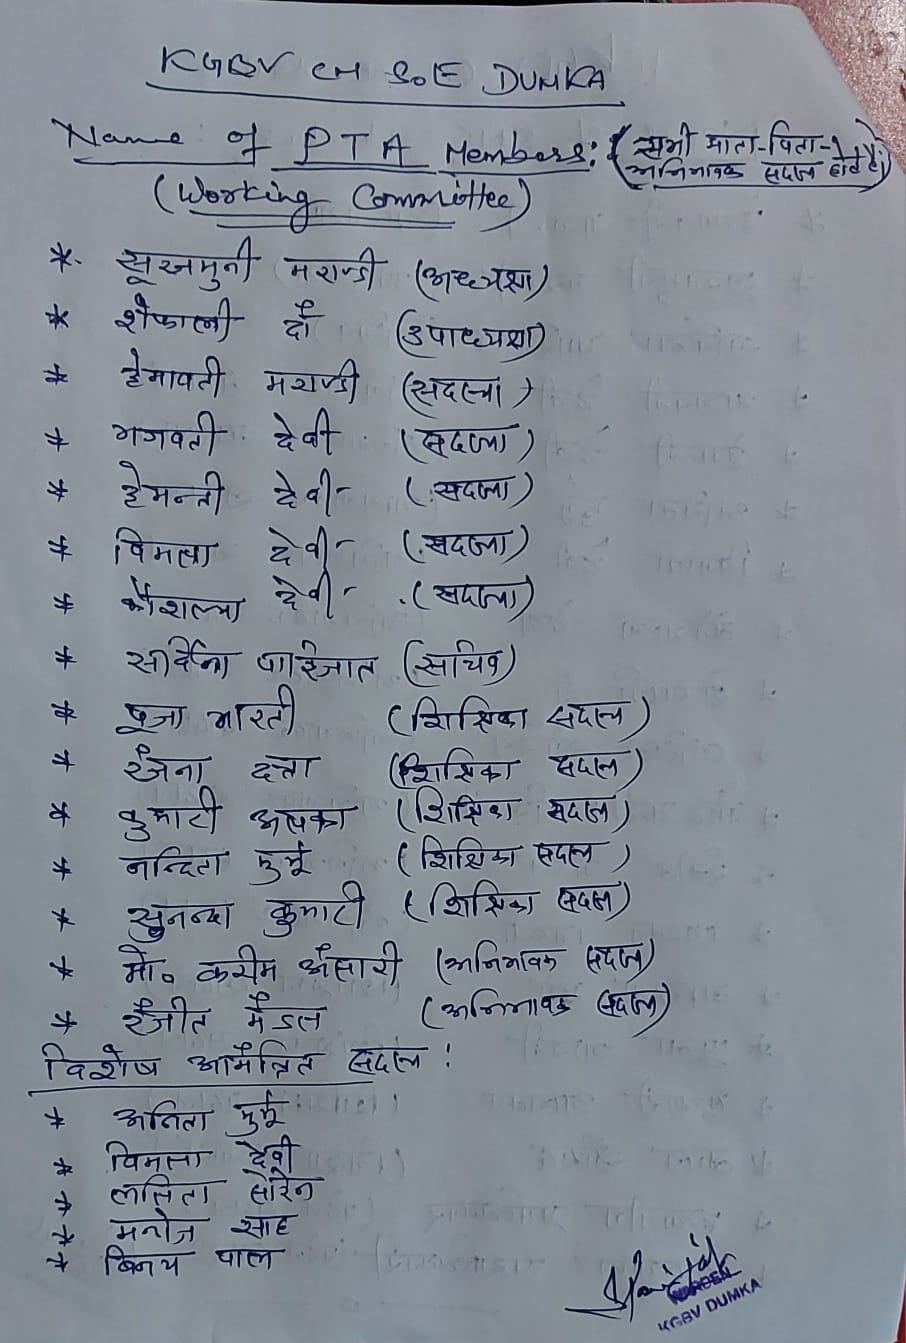 KGBV CM SoE DUMKA
Name of PTA Members: (सभी माता-पिता-
अभिभावक सदस्य होते हैं)
(Working Committee)
* सूरजमुनी मराण्डी (अध्यक्षा)
* शेफाली दाँ (उपाध्यक्षा)
* हेमावती मराण्डी (सदस्या)
* भगवती देवी (सदस्या)
* हेमन्ती देवी- (सदस्या)
* विमला देवी- (सदस्या)
* कौशल्या देवी- (सदस्या)
* (सचिव)
* पूजा भारती (शिक्षिका सदस्य)
* रंजना दत्ता (शिक्षिका सदस्य)
* कुमारी अलका (शिक्षिका सदस्य)
* नन्दिता मुर्मू (शिक्षिका सदस्य)
* सुनन्दा कुमारी (शिक्षिका सदस्य)
* मो० करीम अंसारी (अभिभावक सदस्य)
* रंजीत मंडल (अभिभावक सदस्य)
विशेष आमंत्रित सदस्य :
* अनिता मुर्मू
* विमला देवी
* ललिता सोरेन
* मनोज साह
* विनय पाल
WARDEN
KGBV DUMKA